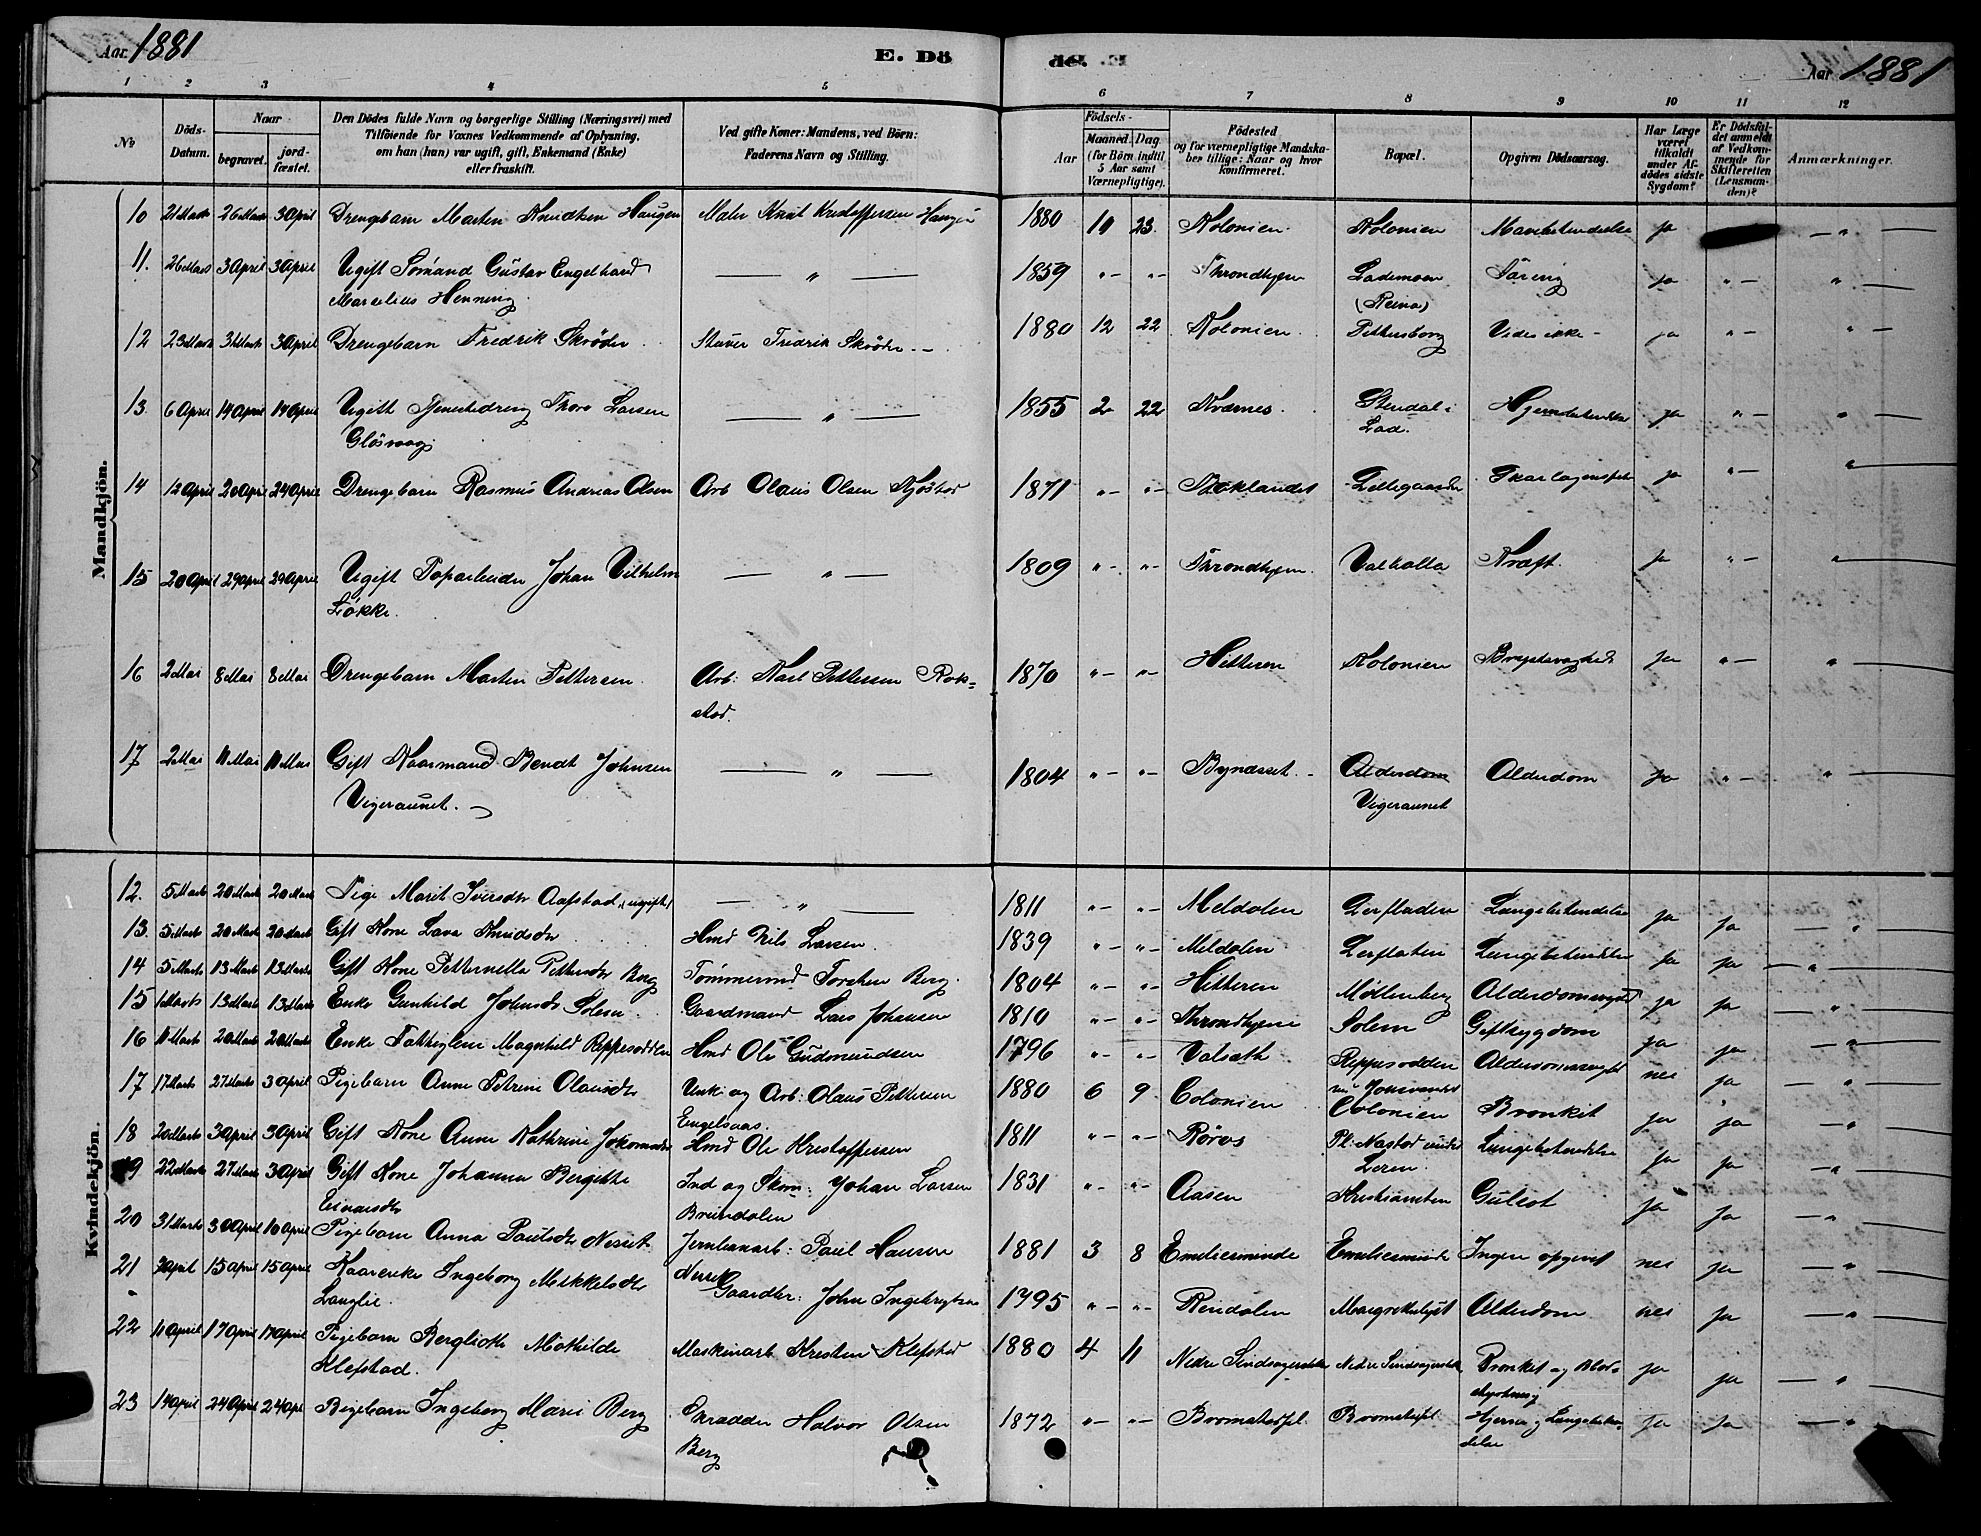 Aar 1881
E. Dö
de. E.
Aar 1881
1 2 3 4 5 6 7 8 9 10 11 12
No
Döds-Datum.
Naar
begravet.
jordfæstet.
Den Dödes fulde Navn og borgerlige Stilling (Næringsvei) med
Tilföiende for Voxnes Vedkommende af Oplysning,
om han (hun) var ugift, gift, Enkemand (Enke)
eller fraskilt.
Ved gifte Koner: Mandens, ved Börn:
Faderens Navn og Stilling.
Födsels-
Aar
Maaned. Dag.
(for Börn indtil
5 Aar samt
Værnepligtige).
Födested
og for værnepligtige Mandskaber tillige: Naar og hvor
konfirmeret.
Bopæl.
Opgiven Dödsaarsag.
Har Læge
været
tilkaldt
under Afdödes sidste
Sygdom?
Er Dödsfaldet anmeldt
af Vedkommende for
Skifteretten
(Lensmanden)?
Anmærkninger.
Mandkjön.
10 21 Marts 26 Marts 3 April Drengebarn Martin Knudsen Haugen Maler Knut Kristoffersen Haugen 1880 11 23 Kolonien Kolonien ja
11. 26 Marts 3 April 3 April Ugift Sømand Gustav Engelhard — " — 1859 " " Throndhjem Lademoen Tæring ja " "
Marselius Henning (Reina)
12 23 Marts 31 Marts 3 April Drengebarn Fredrik Skrøder Stuver Fredrik Skrøder 1880 12 22 Kolonien Pettersborg Vides ikke ja " "
13 6 April 14 April 14 April Ugift Thore Larsen — " — 1855 2 22 Stendal i ja " "
Lad.
14 12 April 20 April 24 April Drengebarn Rasmus Andreas Olsen Arb Olaus Olsen 1871 " " Baklandet Lillegaarden Skarlagensfeber ja " "
15 20 April 29 April 29 April Ugift Johan Vilhelm — " — 1809 " " Throndhjem Valhalla Kræft ja " "
Løkke.
16 2 Mai 8 Mai 8 Mai Drengebarn Martin Pettersen Arb: Karl Pettersen Rok= 1870 " " Hitteren Kolonien ja " "
stad.
17 2 Mai 11 Mai 11 Mai Gift Kaarmand Bendt Johnsen — " — 1804 " " Bynæsset Alderdom Alderdom ja " "
Vigeraunet. Vigeraunet
Kvindekjön.
12. 5 Marts 20 Marts 20 Marts Pige Marit Iversdtr Aafstad (ugift) — " — 1811 " " Meldalen Lerfladen Lungebetændelse ja ja "
13. 5 Marts 20 Marts 20 Marts Gift Kone Lava Knudsdtr Hmd Nils Larsen 1839 " " Meldalen Lerfladen Lungebetændelse ja ja "
14 5 Marts 13 Marts 13 Marts Gift Kone Petternella Pettersdtr Berg Tømmermd Torsten Berg 1804 " " Hitteren Møllenberg Alderdomssvaghed ja ja "
15 Marts 13 Marts 13 Marts Enke Gunhild Johnsdtr Solem Gaardmand Lars Johansen 1810 " " Throndhjem Solem Giftsygdom ja ja "
16 11 Marts 20 Marts 20 Marts Enke Magnhild Reppesødden Hmd Ole Gudmundsen 1796 " " Valsøth Reppesødden Alderdomssvaghed nei ja "
17 17 Marts 27 Marts 3 April Pigebarn Anne Petrine Olausdtr Enk. og Arb: Olaus Pettersen 1880 6 9 Colonien Colonien Bronkit ja ja "
Engelsaas.
18 20 Marts 3 April 3 April Gift Kone Anne Kathrine Hmd Ole Kristoffersen 1811 " " Røros Pl. Nastad under Lungebetændelse ja ja "
Leren.
19 22 Marts 27 Marts 3 April Gift Kone Johanna Bergitte Ind og Skom: Johan Larsen 1831 " " Aasen Kristiansten Gulsot ja ja "
Einarsdtr Brundalen
20 31 Marts 3 April 10 April Pigebarn Anna Paulsdtr Nesset Jernbanearb: Paul Hansen 1881 3 8 Emiliesminde Emiliesminde Ingen opgivet nei ja "
Nesset
21 April 15 April 15 April Ingeborg Mikkelsdtr Gaardbr: John Ingebrigtsen 1795 " " Rendalen Alderdom nei ja "
Langlie.
22 11 April 17 April 17 April Pigebarn Berglioth Mathilde Maskinarb Kristen Klefstad 1880 4 11 Bronkit og Blod- ja ja "
Klefstad. styrtning
23 14 April 24 April 24 Apl Pigebarn Ingeborg Marie Berg Skrædder Halvor Olsen 1872 " " Bromstadpl. Bromstadpl Hjerne og Lungebetæn- ja ja "
Berg delse